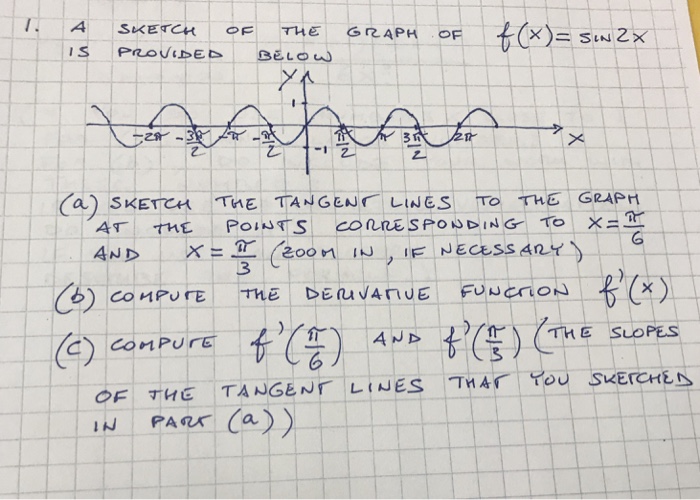 1. A SKETCH OF THE GRAPH OF f(x) = SIN 2x
IS PROVIDED BELOW
y
1
-2π -3π/2 -π -π/2 π/2 π 3π/2 2π x
-1
(a) SKETCH THE TANGENT LINES TO THE GRAPH
AT THE POINTS CORRESPONDING TO x = π/6
AND x = π/3 (ZOOM IN, IF NECESSARY)
(b) COMPUTE THE DERIVATIVE FUNCTION f'(x)
(c) COMPUTE f'(π/6) AND f'(π/3) (THE SLOPES
OF THE TANGENT LINES THAT YOU SKETCHED
IN PART (a))